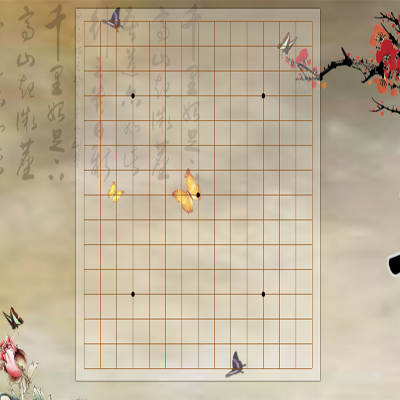 千里始足下
高山起微塵
吾道亦如此
行之貴日新
千里始足下
高山起微塵